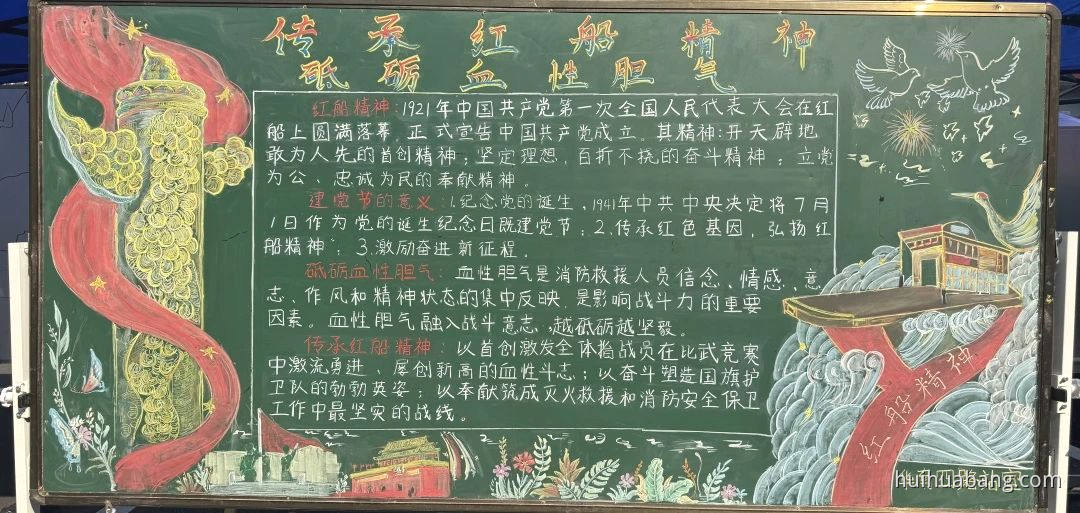 传承红船精神
砥砺血性胆气
红船精神:1921年中国共产党第一次全国人民代表大会在红
船上圆满落幕,正式宣告中国共产党成立。其精神:开天辟地
敢为人先的首创精神;坚定理想,百折不挠的奋斗精神;立党
为公、忠诚为民的奉献精神。
建党节的意义:1.纪念党的诞生,1941年中共中央决定将7月
1日作为党的诞生纪念日既建党节;2.传承红色基因,弘扬红
船精神;3.激励奋进新征程.
砥砺血性胆气:血性胆气是消防救援人员信念、情感、意
志、作风和精神状态的集中反映,是影响战斗力的重要
因素。血性胆气融入战斗意志,越砥砺越坚毅。
传承红船精神:以首创激发全体指战员在比武竞赛
中激流勇进、屡创新高的血性斗志;以奋斗塑造国旗护
卫队的勃勃英姿;以奉献筑成灭火救援和消防安全保卫
工作中最坚实的战线。
红船精神
huihuabang.com